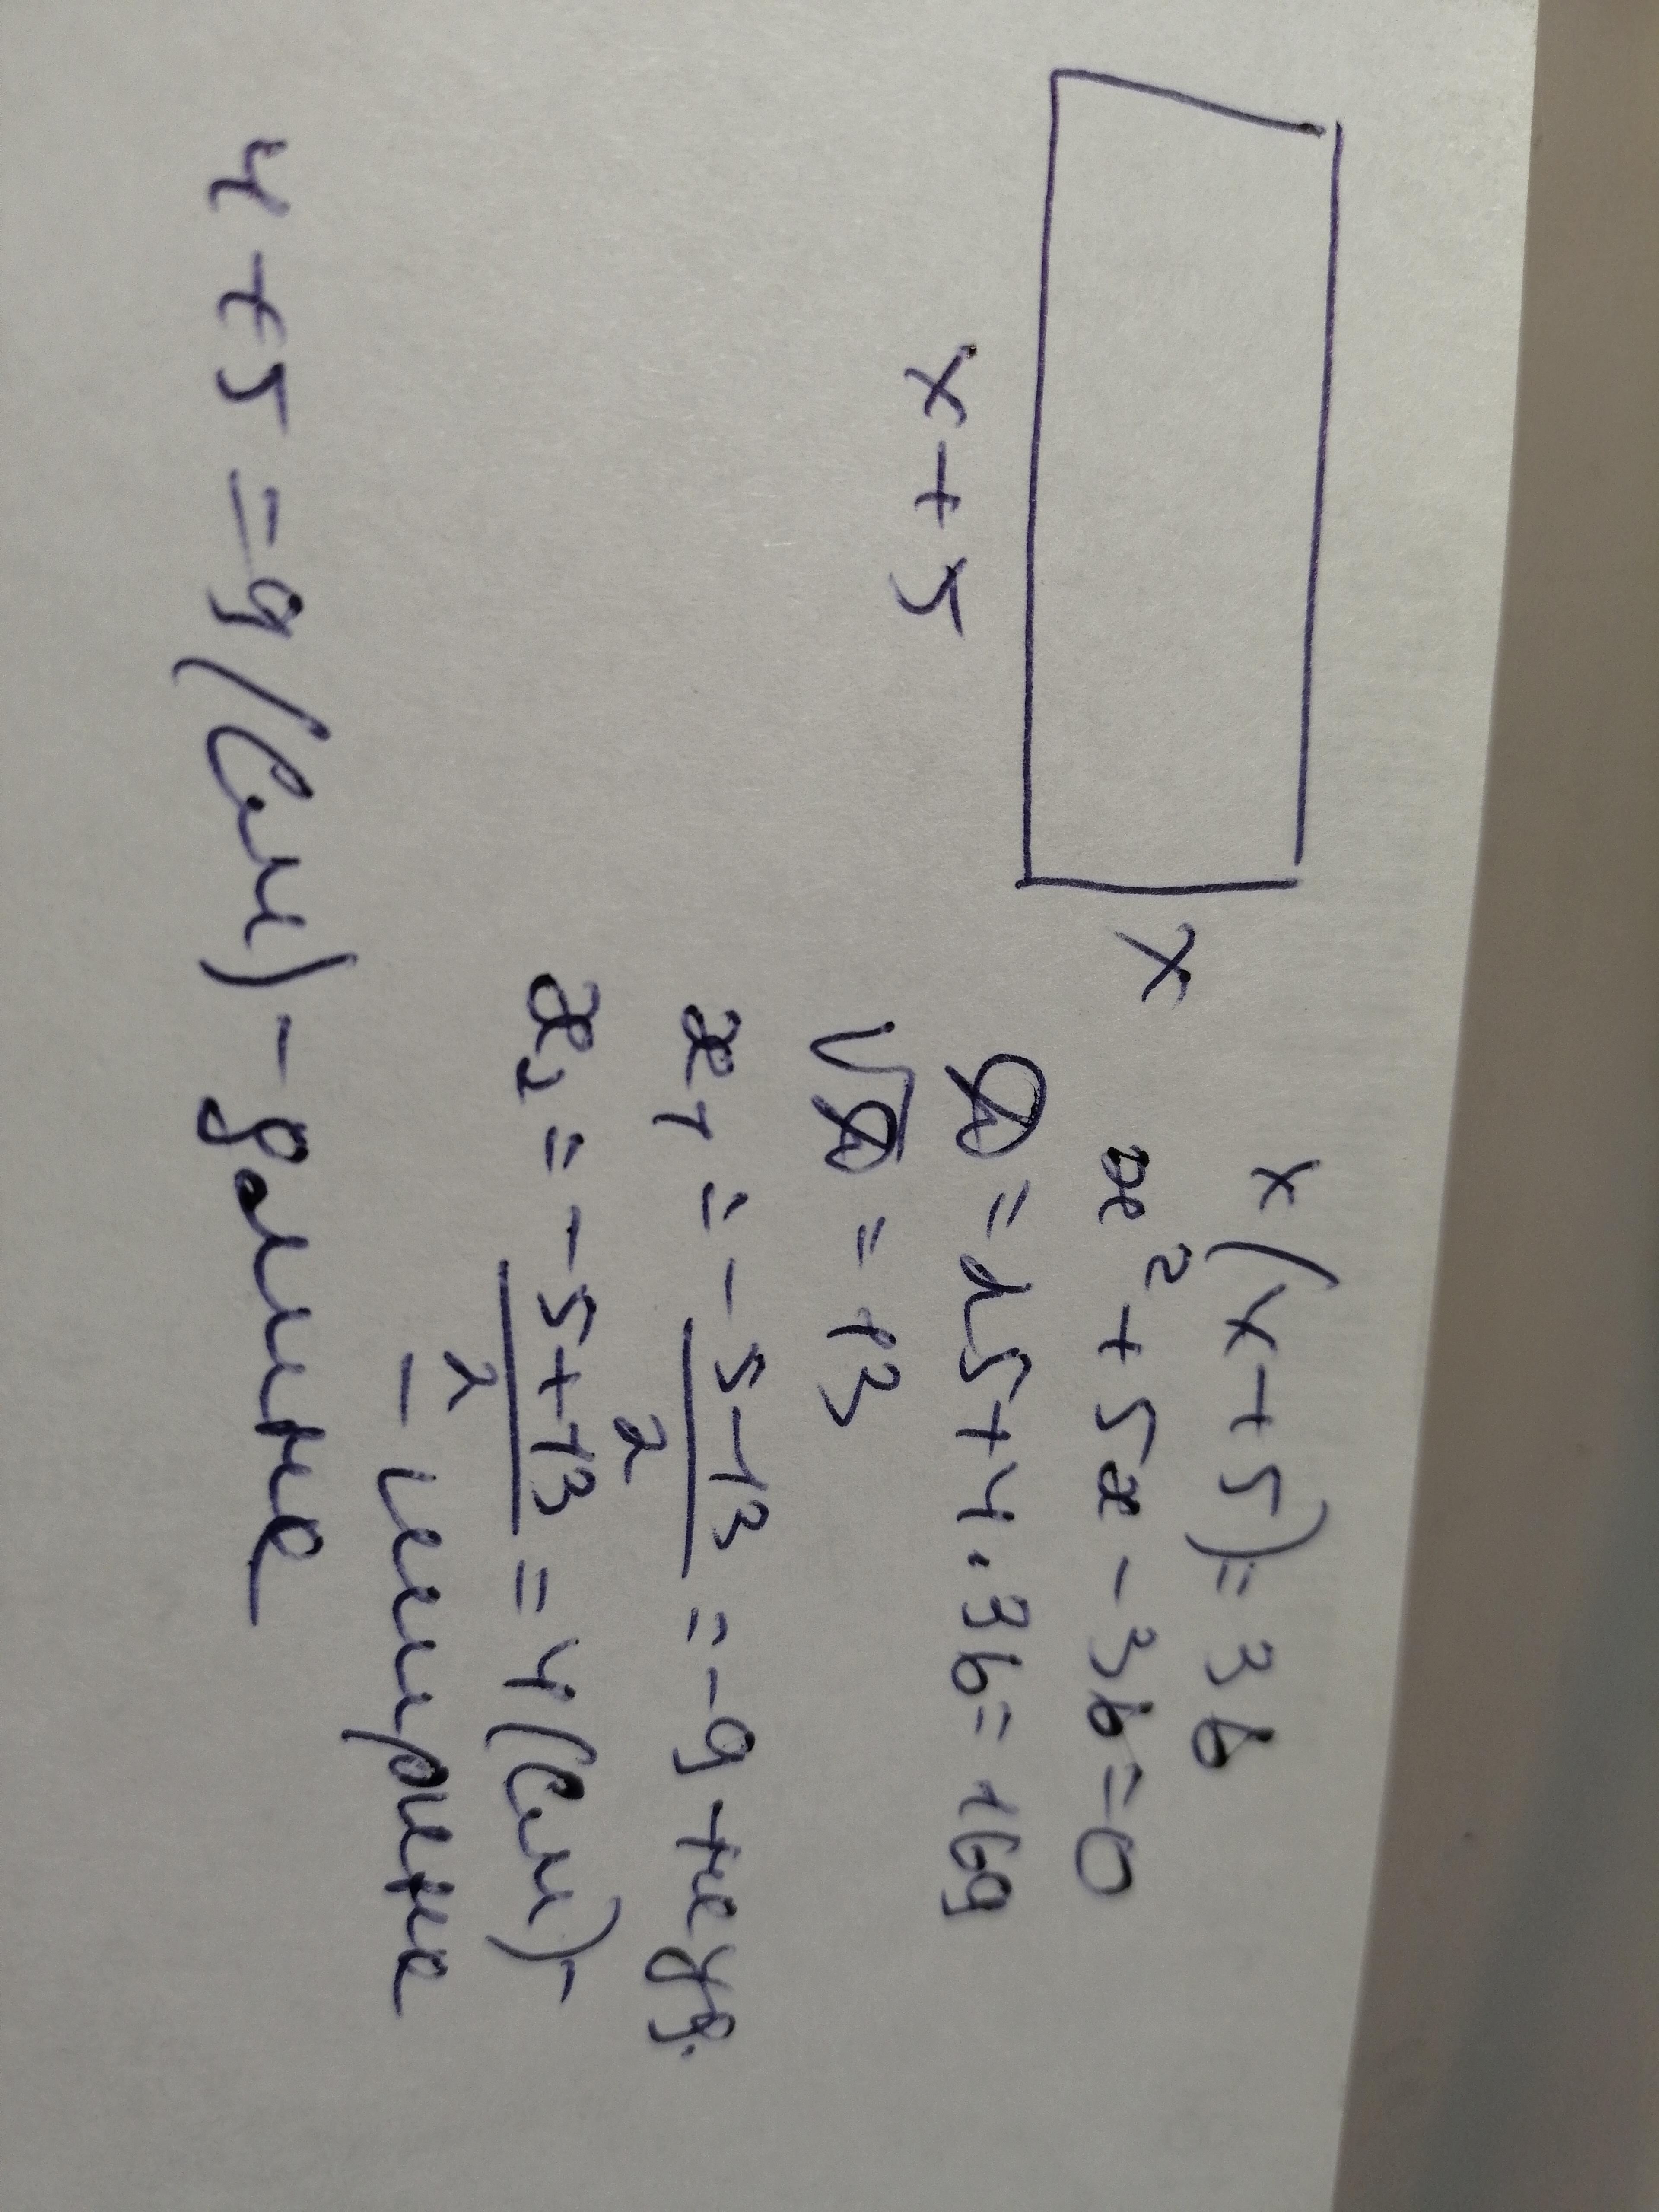 x
x+5
x(x+5)=36
x²+5x-36=0
D=25+4·36=169
√D=13
x₁=-5-13/2=-9 не уд.
x₂=-5+13/2=4(см)-
-ширине
4+5=9(см)-длине